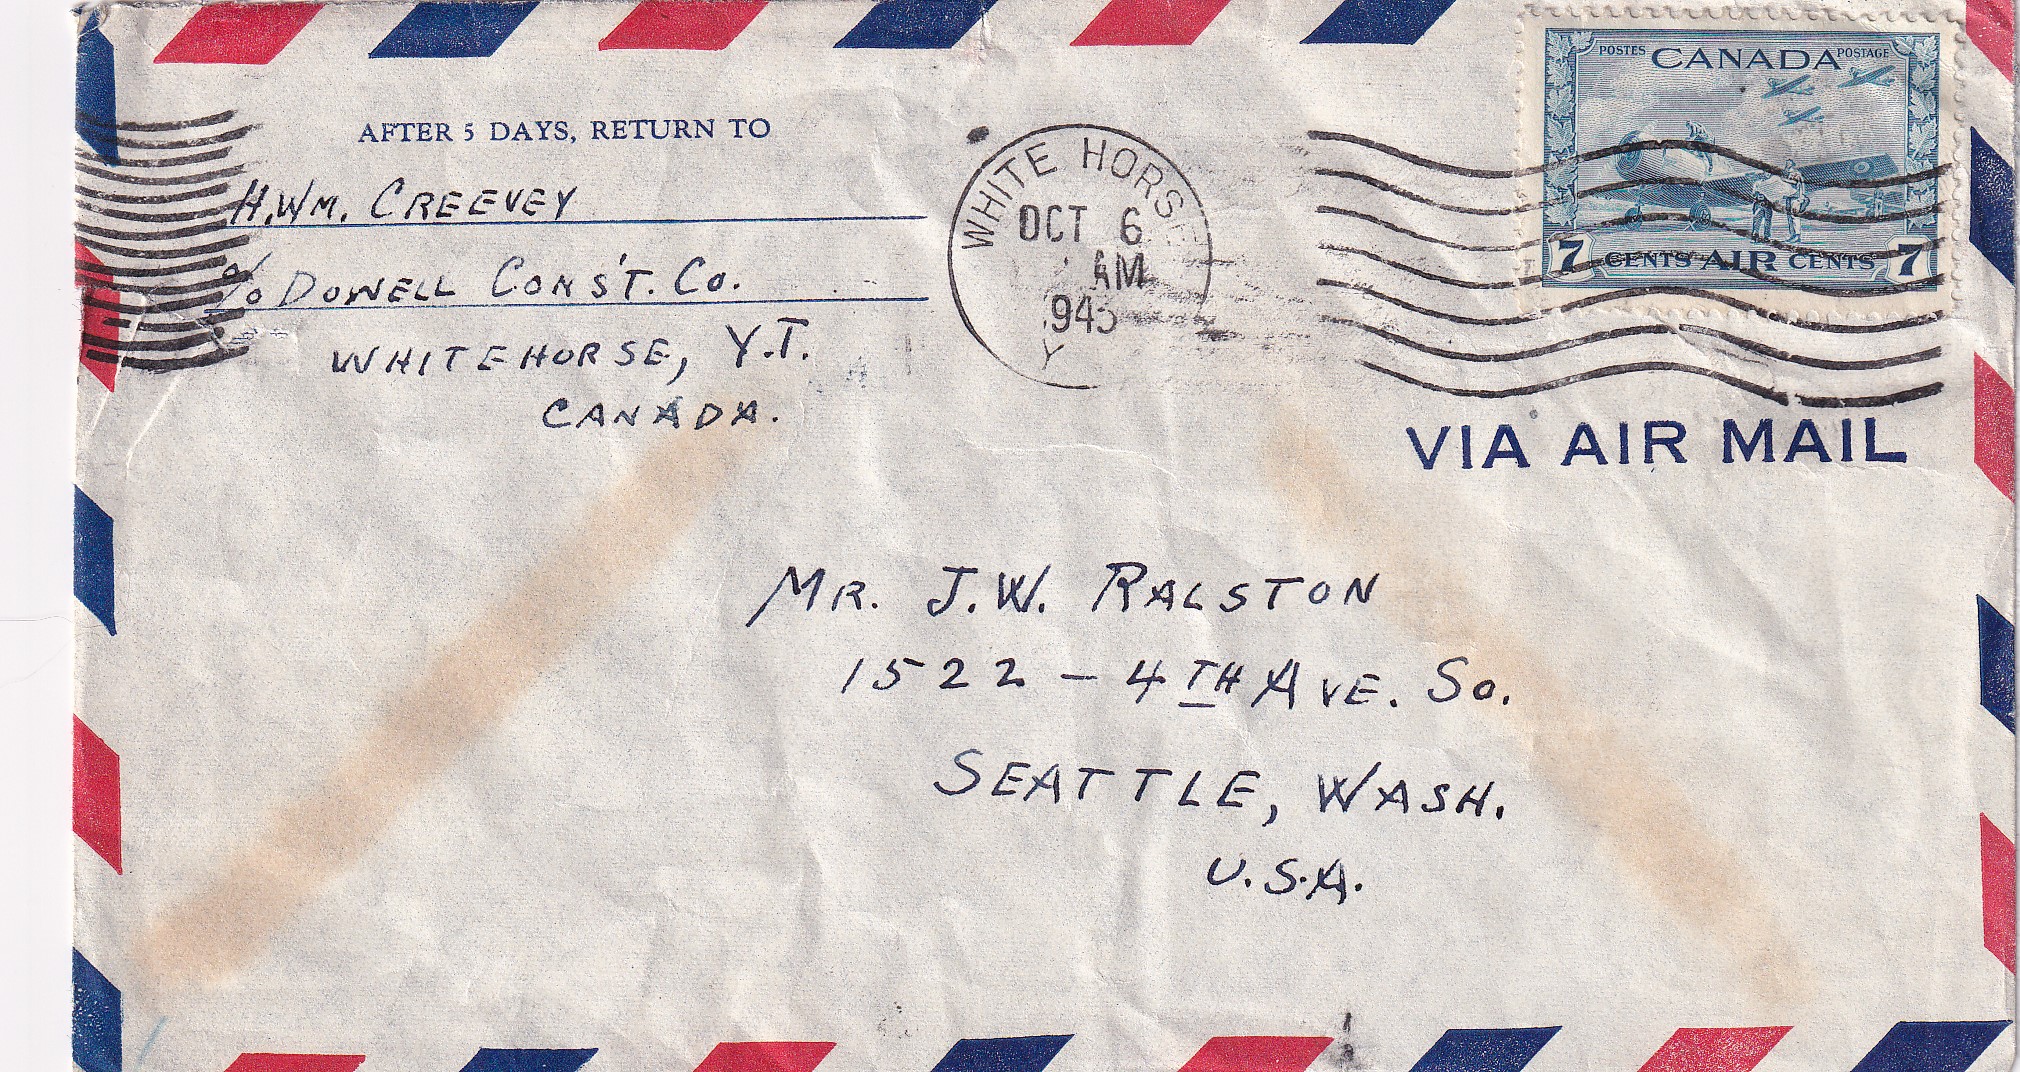 AFTER 5 DAYS, RETURN TO
H. WM. CREEVEY
c/o DOWELL CONS'T. CO.
WHITEHORSE, Y.T.
CANADA.
WHITE HORSE
OCT 6
AM
Y
POSTES CANADA POSTAGE
7 CENTS AIR CENTS 7
VIA AIR MAIL
MR. J.W. RALSTON
1522 - 4TH AVE. SO.
SEATTLE, WASH.
U.S.A.